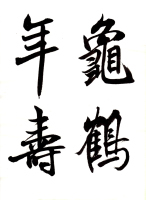 龜鶴
年壽